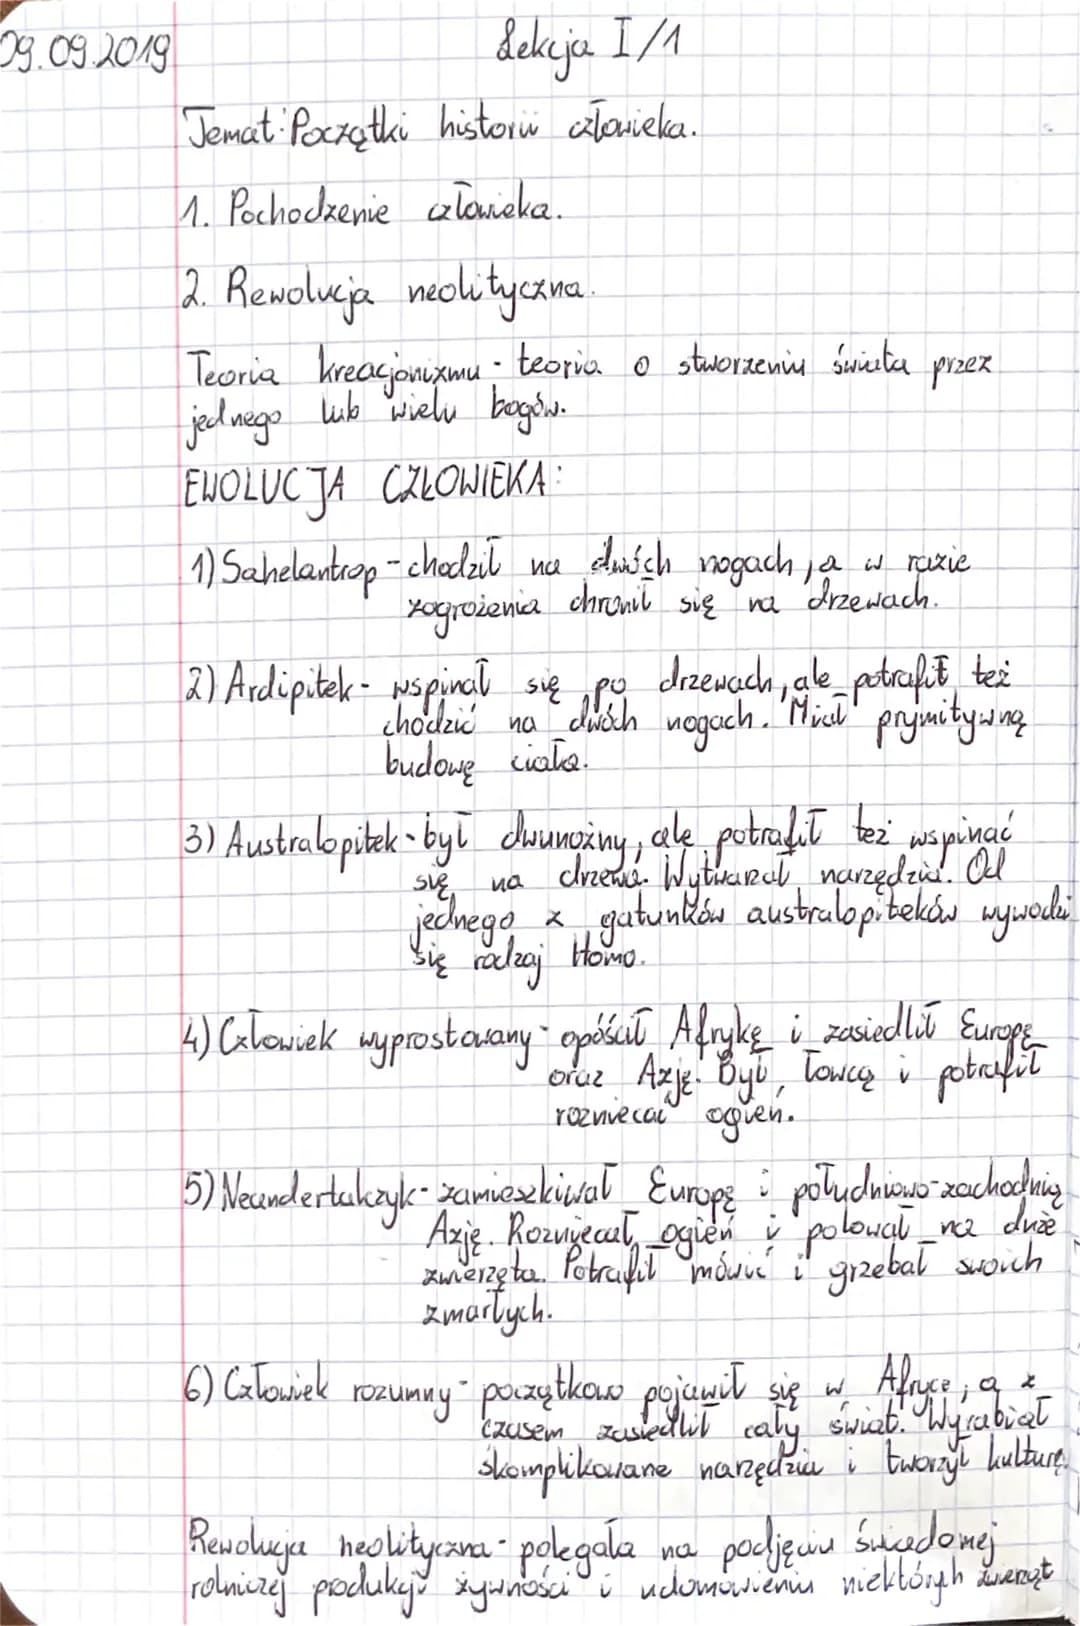 09.09.2019
Lekcja I/1
Temat: Początki historii człowieka.
1. Pochodzenie człowieka.
2. Rewolucja neolityczna.
Teoria kreacjonizmu - teoria o stworzeniu świata przez
jednego lub wielu bogów.
EWOLUCJA CZŁOWIEKA:
1) Sahelantrop - chodził na dwóch nogach, a w razie
zagrożenia chronił się na drzewach.
2) Ardipitek - wspinał się po drzewach, ale potrafił też
chodzić na dwóch nogach. Miał prymitywną
budowę ciała.
3) Australopitek - był dwunożny, ale potrafił też wspinać
się na drzewa. Wytwarzał narzędzia. Od
jednego z gatunków australopiteków wywodzi
się rodzaj Homo.
4) Człowiek wyprostowany - opóścił Afrykę i zasiedlił Europę
oraz Azję. Był łowcą i potrafił
rozniecać ogień.
5) Neandertalczyk - zamieszkiwał Europę i południowo-zachodnią
Azję. Rozniecał ogień i polował na duże
zwierzęta. Potrafił mówić i grzebał swoich
zmarłych.
6) Człowiek rozumny - początkowo pojawił się w Afryce, a z
czasem zasiedlił cały świat. Wyrabiał
skomplikowane narzędzia i tworzył kulturę.
Rewolucja neolityczna - polegała na podjęciu świadomej
rolniczej produkcji żywności i udomowieniu niektórych zwierząt